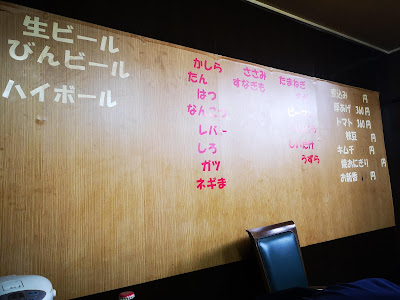 生ビール
びんビール
ハイボール
かしら
たん
はつ
なんこつ
レバー
しろ
ガツ
ネギま
ささみ
すなぎも
たまねぎ
ピーマン
しいたけ
うずら
煮込み 円
厚あげ 360円
トマト 360円
枝豆 円
キムチ 円
焼おにぎり 円
お新香 円